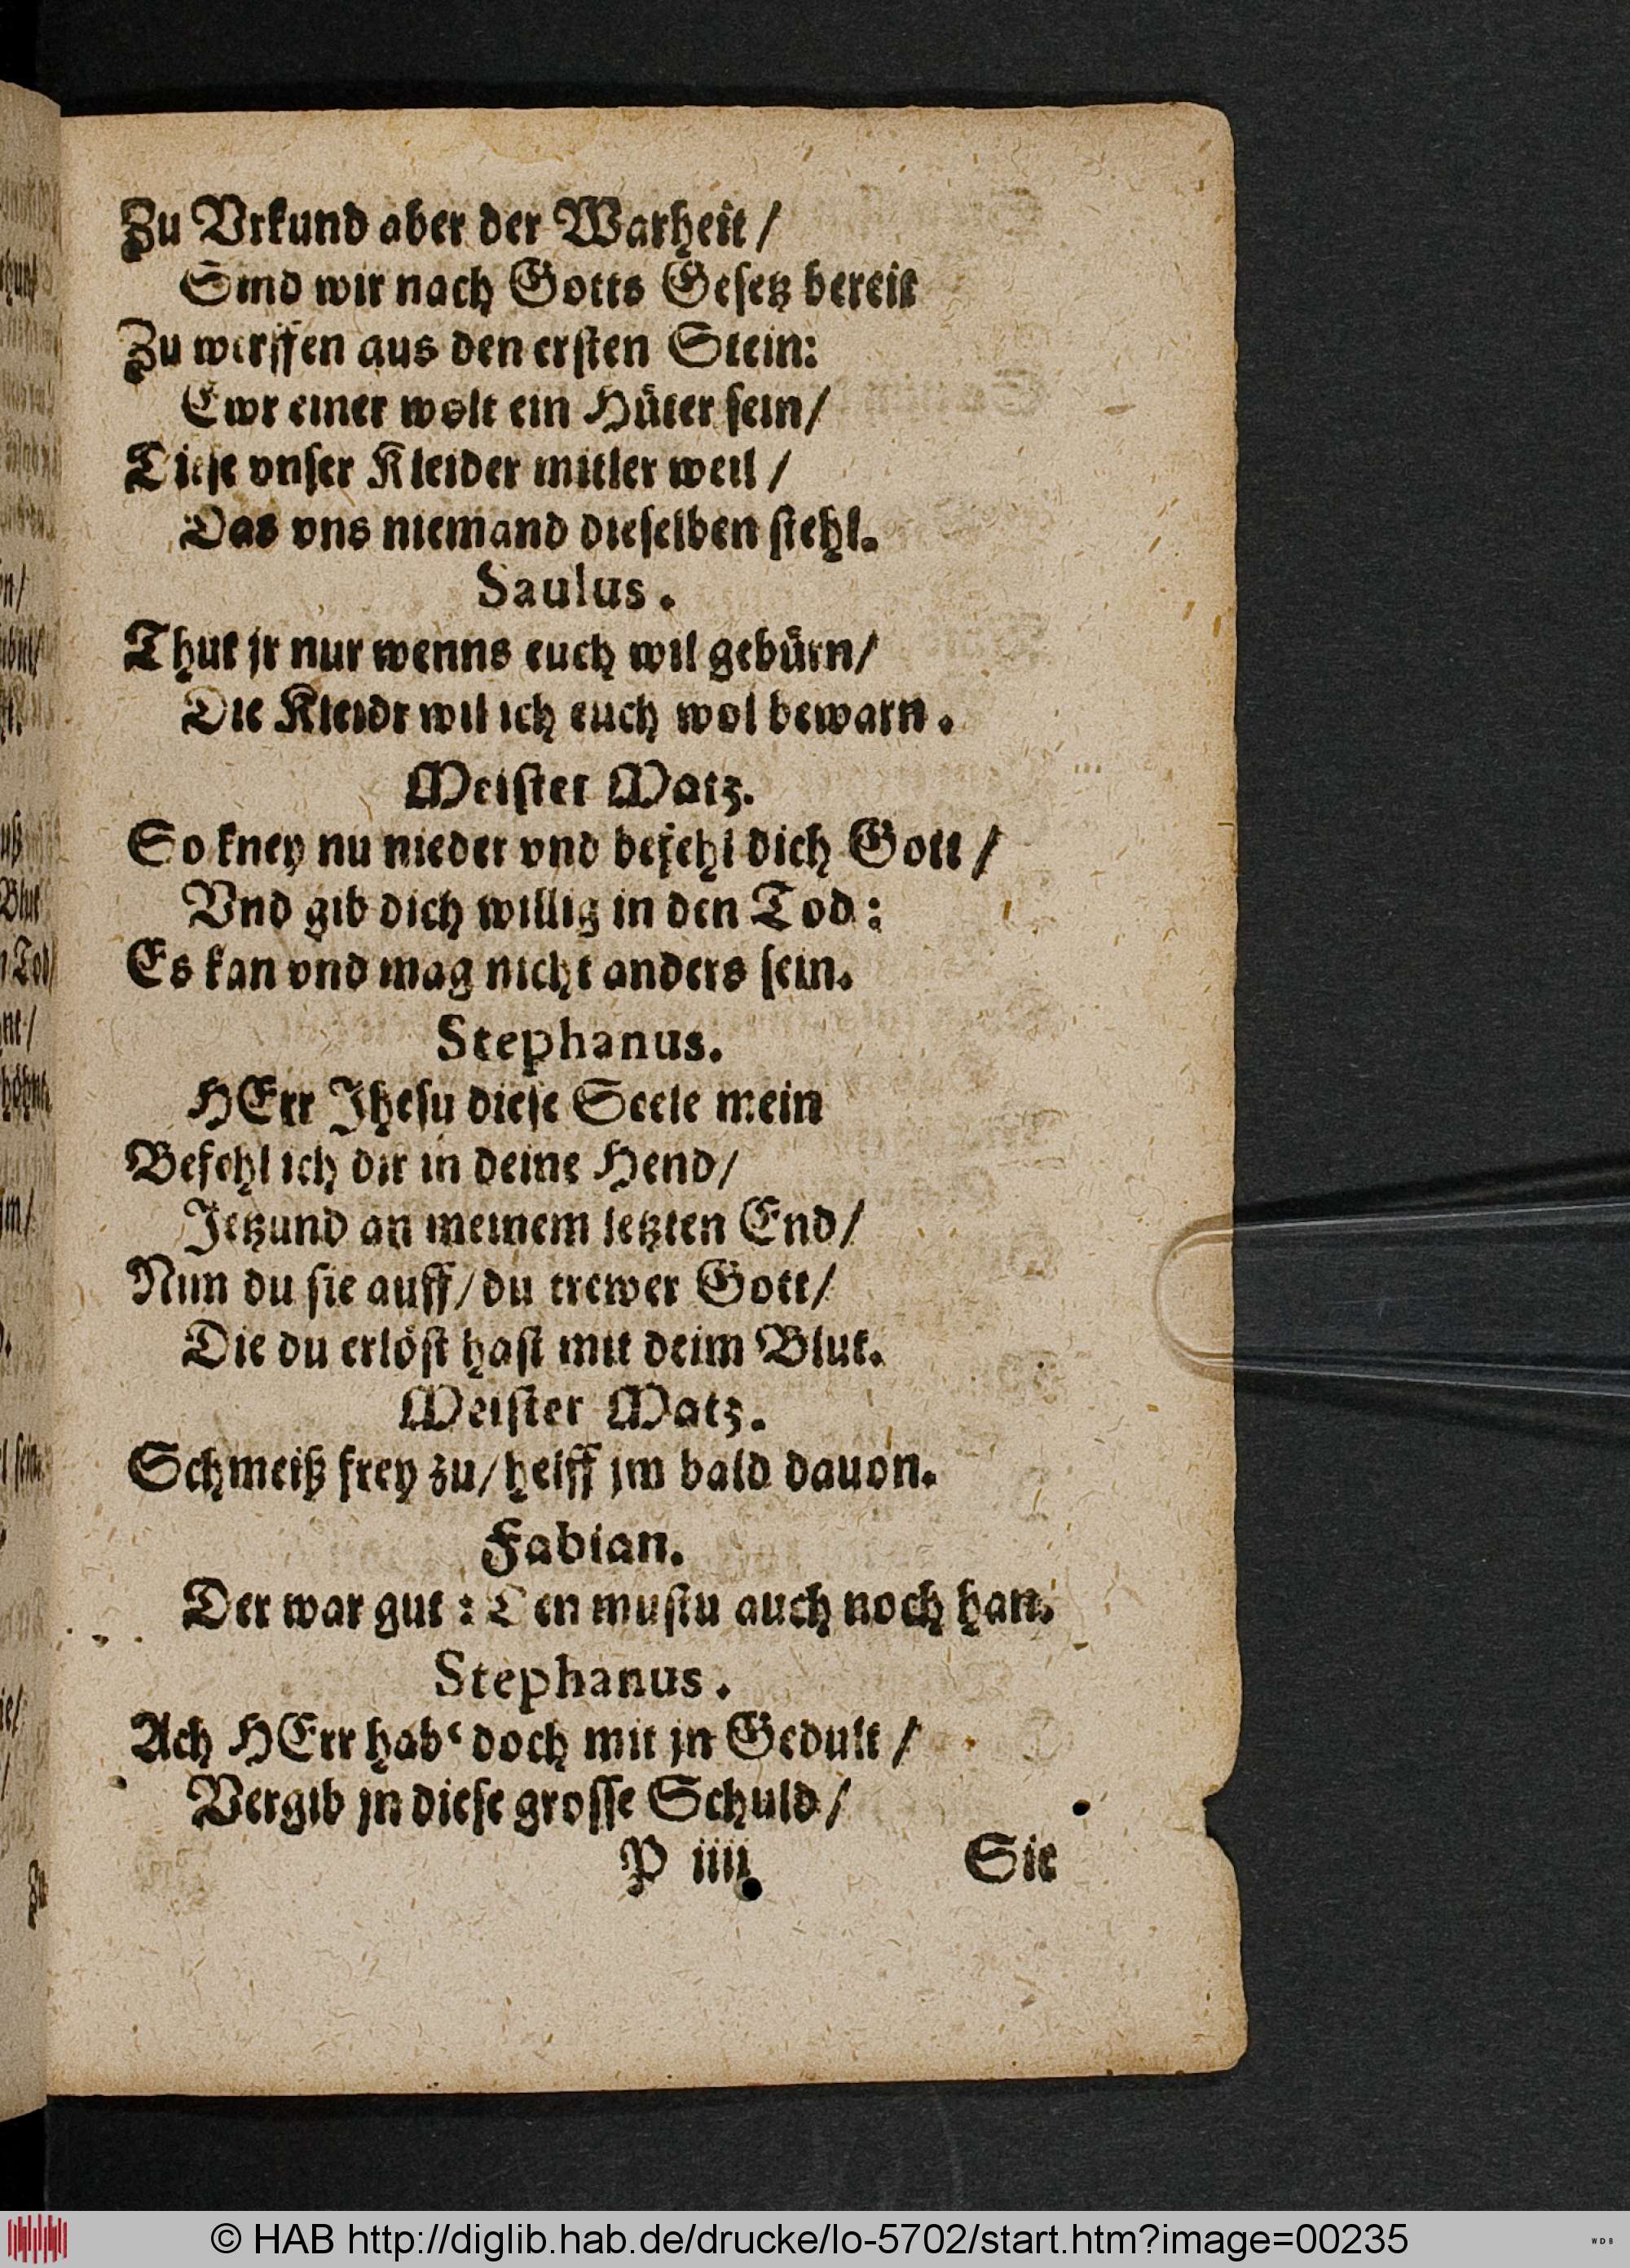 Zu Vrkund aber der Warheit /
Sind wir nach Gotts Gesetz bereit
Zu werffen aus den ersten Stein:
Ewr einer wolt ein Hüter sein /
Diese vnser Kleider mitler weil /
Das vns niemand dieselben stehl.
Saulus.
Thut jr nur wenns euch wil gebürn /
Die Kleidr wil ich euch wol bewarn.
Meister Matz.
So kney nu nieder vnd befehl dich Gott /
Vnd gib dich willig in den Tod:
Es kan vnd mag nicht anders sein.
Stephanus.
HErr Jhesu diese Seele mein
Befehl ich dir in deine Hend /
Jetzund an meinem letzten End /
Nim du sie auff / du trewer Gott /
Die du erlöst hast mit deim Blut.
Meister Matz.
Schmeiß frey zu / helff jm bald dauon.
Fabian.
Der war gut: Den mustu auch noch han.
Stephanus.
Ach HErr hab' doch mit jn Gedult /
Vergib jn diese grosse Schuld /
P iiii Sie
© HAB http://diglib.hab.de/drucke/lo-5702/start.htm?image=00235